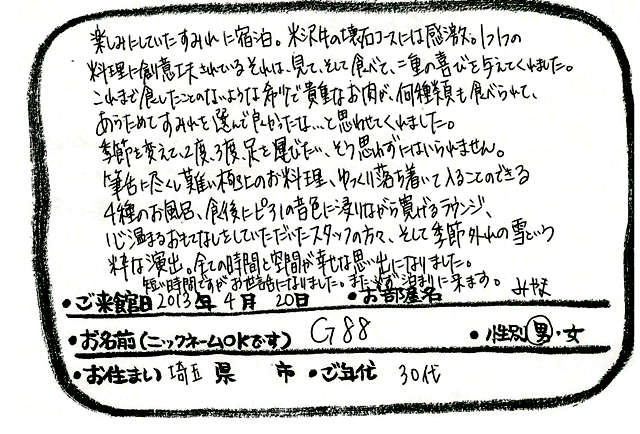 楽しみにしていたすみれに宿泊。米沢牛の懐石コースには感激。1つ1つの
料理に創意工夫されているそれは、見て、そして食べて、二重の喜びを与えてくれました。
これまで食したことのないような希少で貴重なお肉が、何種類も食べられて、
あらためてすみれを選んで良かったな…と思わせてくれました。
季節を変えて、2度、3度、足を運びたい、そう思わずにはいられません。
筆舌に尽くし難い極上のお料理、ゆっくり落ち着いて入ることのできる
4種のお風呂、食後にピアノの音色に浸りながら寛げるラウンジ、
心温まるおもてなしをしていただいたスタッフの方々、そして季節外れの雪という
粋な演出。全ての時間と空間が幸せな思い出になりました。
短い時間ですがお世話になりました。また必ず泊まりに来ます。
・ご来館日 2013年 4月 20日 ・お部屋名 みやま
・お名前(ニックネームOKです) G88 ・性別 男・女
・お住まい 埼玉 県 市 ・ご年代 30代